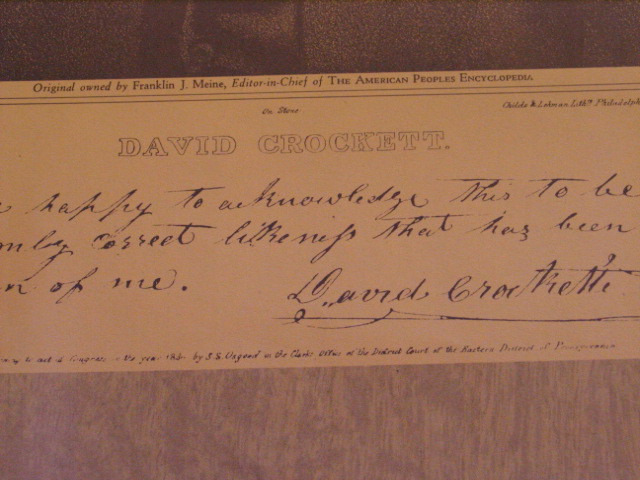 Original owned by Franklin J. Meine, Editor-in-Chief of THE AMERICAN PEOPLES ENCYCLOPEDIA.
On Stone
Childs & Lehman Lithrs Philadelph
DAVID CROCKETT.
happy to acknowledge this to be
only correct likeness that has been
n of me.
David Crockett
to act of Congress in the year by S.S. Osgood in the Clerks Office of the District Court of the Eastern District of Pennsylvania